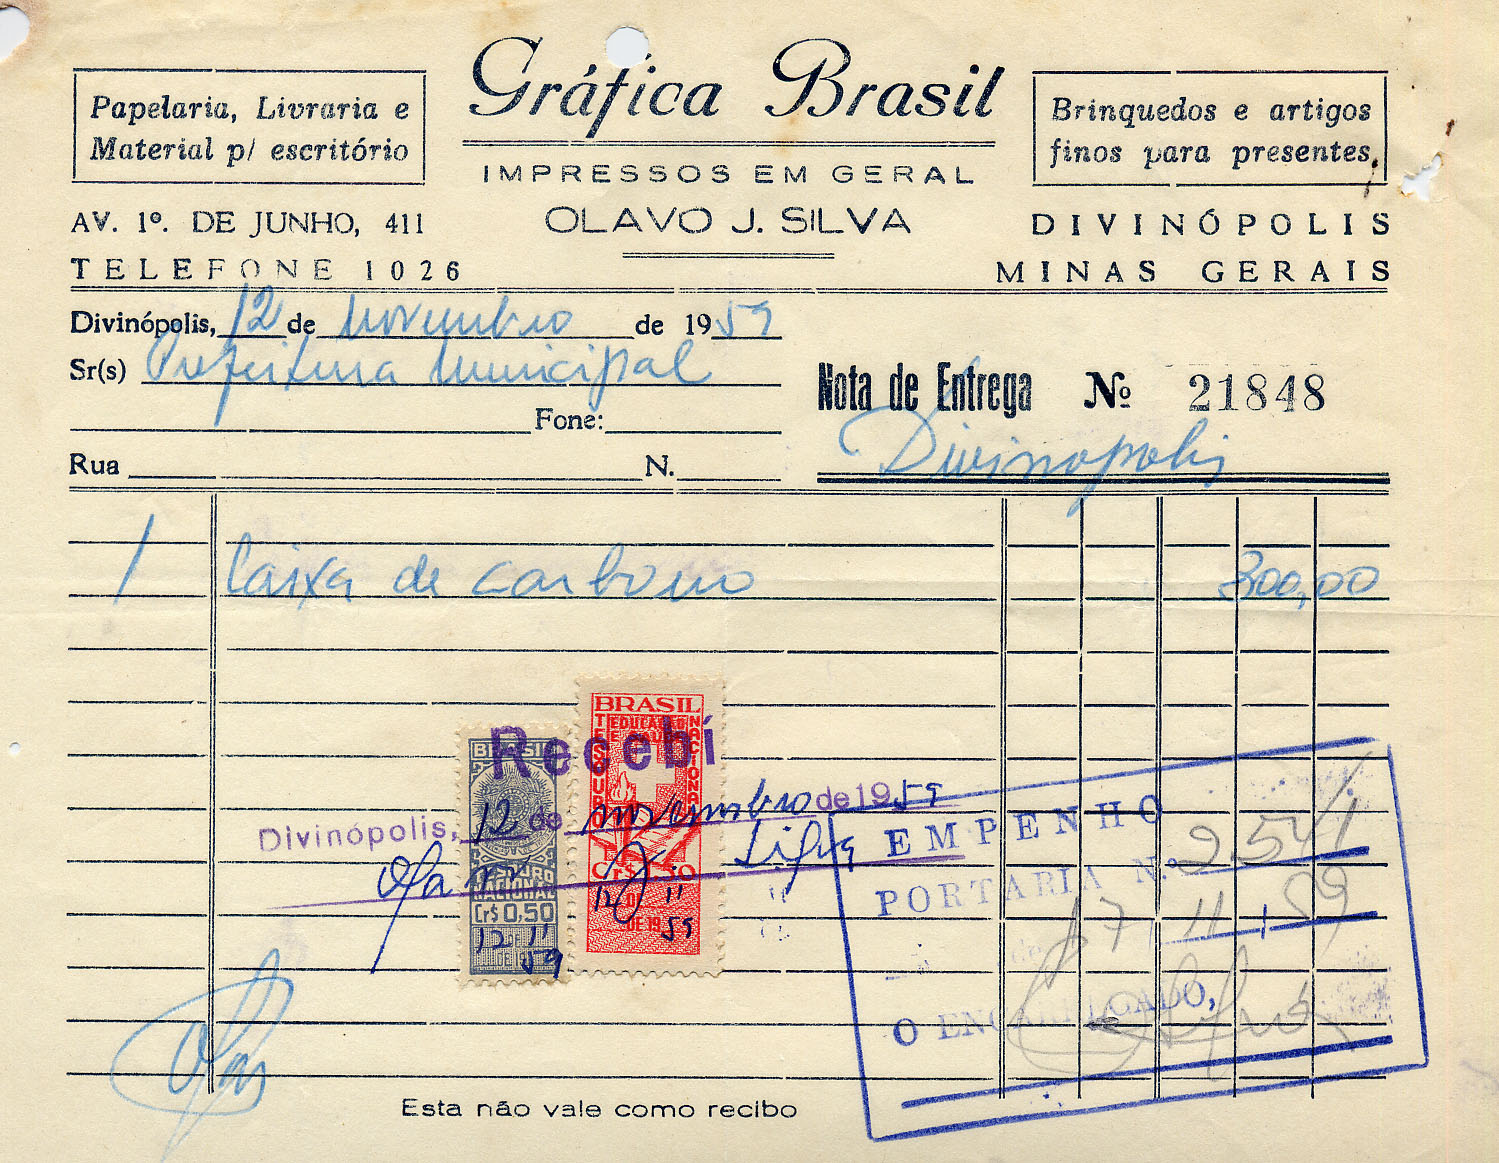 Gráfica Brasil
Papelaria, Livraria e
Material p/ escritório
Brinquedos e artigos
finos para presentes,
IMPRESSOS EM GERAL
OLAVO J. SILVA
AV. 1º. DE JUNHO, 411
TELEFONE 1026
DIVINÓPOLIS
MINAS GERAIS
Divinópolis, 12 de novembro de 1959
Sr(s) Prefeitura Municipal
Fone:
Nota de Entrega Nº 21848
Divinopolis
Rua N.
1 Caixa de carbono 300,00
BRASIL
TESOURO EDUCAÇÃO E SAUDE NACIONAL
BRASIL
Recebí
Divinópolis, 12 de novembro de 1959
Silva
TESOURO
NACIONAL
Cr$ 0,50
12 11
DE 19 59
Cr$
12 11
DE 19 59
EMPENHO
PORTARIA N.º 2541
de 17 11 59
O ENCARREGADO,
Esta não vale como recibo